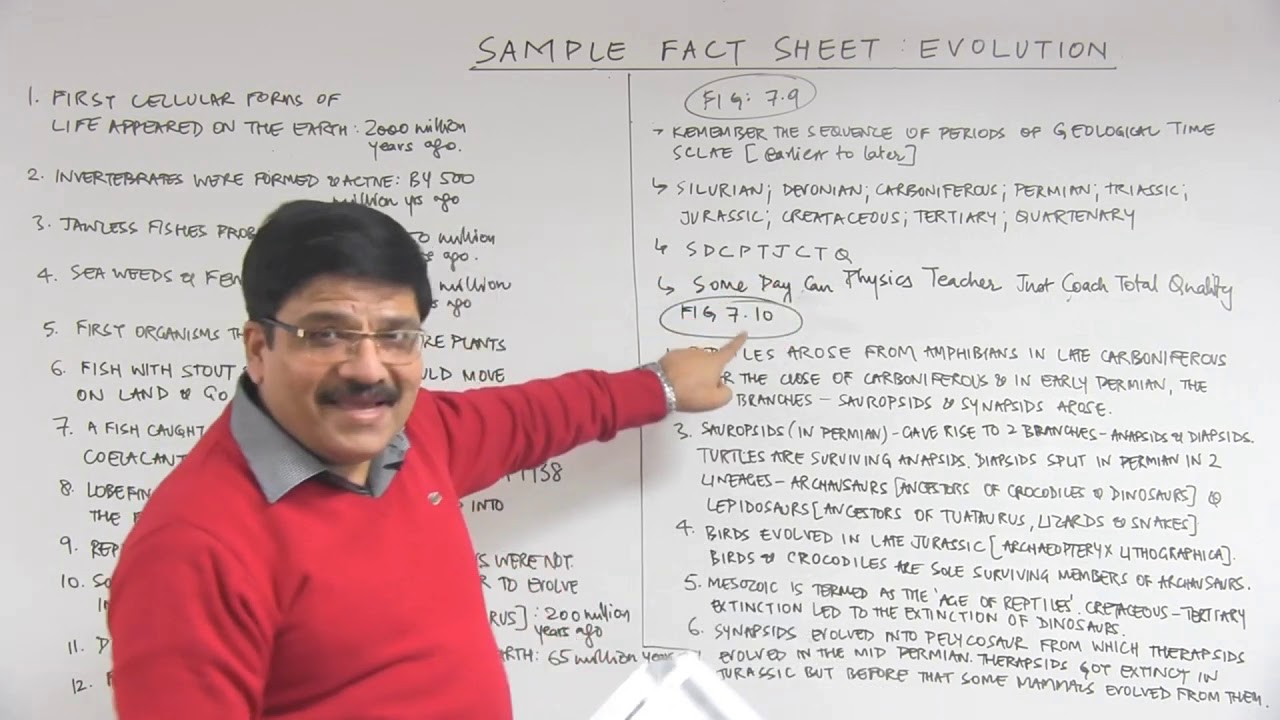 SAMPLE FACT SHEET : EVOLUTION
1. FIRST CELLULAR FORMS OF
LIFE APPEARED ON THE EARTH : 2000 million
years ago.
2. INVERTEBRATES WERE FORMED & ACTIVE: BY 500
million yrs ago
3. JAWLESS FISHES
million
ago.
4. SEA WEEDS &
million
ago
5. FIRST ORGANISMS
PLANTS
6. FISH WITH STOUT
MOVE
ON LAND & GO
7. A FISH CAUGHT
8.
INTO
THE
9.
WERE NOT
10.
TO EVOLVE
200 million
years ago
11.
: 65 million years
12.
FIG: 7.9
→ REMEMBER THE SEQUENCE OF PERIODS OF GEOLOGICAL TIME
SCLAE [earlier to later]
↳ SILURIAN; DEVONIAN; CARBONIFEROUS; PERMIAN; TRIASSIC;
JURASSIC; CREATACEOUS; TERTIARY; QUARTENARY
↳ S D C P T J C T Q
↳ Some Day Can Physics Teacher Just Coach Total Quality
FIG 7.10
AROSE FROM AMPHIBIANS IN LATE CARBONIFEROUS
THE CLOSE OF CARBONIFEROUS & IN EARLY PERMIAN, THE
BRANCHES – SAUROPSIDS & SYNAPSIDS AROSE.
3. SAUROPSIDS (IN PERMIAN) – GAVE RISE TO 2 BRANCHES – ANAPSIDS & DIAPSIDS.
TURTLES ARE SURVIVING ANAPSIDS. DIAPSIDS SPLIT IN PERMIAN IN 2
LINEAGES – ARCHAUSAURS [ANCESTORS OF CROCODILES & DINOSAURS] &
LEPIDOSAURS [ANCESTORS OF TUATAURUS, LIZARDS & SNAKES]
4. BIRDS EVOLVED IN LATE JURASSIC [ARCHAEOPTERYX LITHOGRAPHICA].
BIRDS & CROCODILES ARE SOLE SURVIVING MEMBERS OF ARCHAUSAURS.
5. MESOZOIC IS TERMED AS THE 'AGE OF REPTILES'. CRETACEOUS – TERTIARY
EXTINCTION LED TO THE EXTINCTION OF DINOSAURS.
6. SYNAPSIDS EVOLVED INTO PELYCOSAUR FROM WHICH THERAPSIDS
EVOLVED IN THE MID PERMIAN. THERAPSIDS GOT EXTINCT IN
JURASSIC BUT BEFORE THAT SOME MAMMALS EVOLVED FROM THEM.